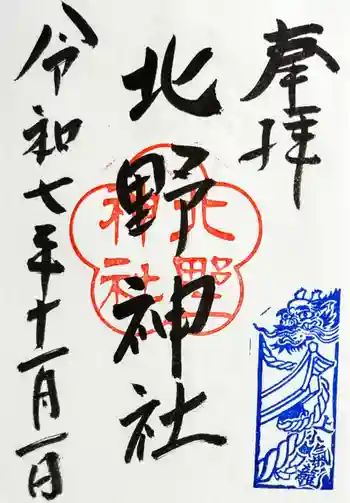 奉拝
北野神社
令和七年十一月一日
北野
神社